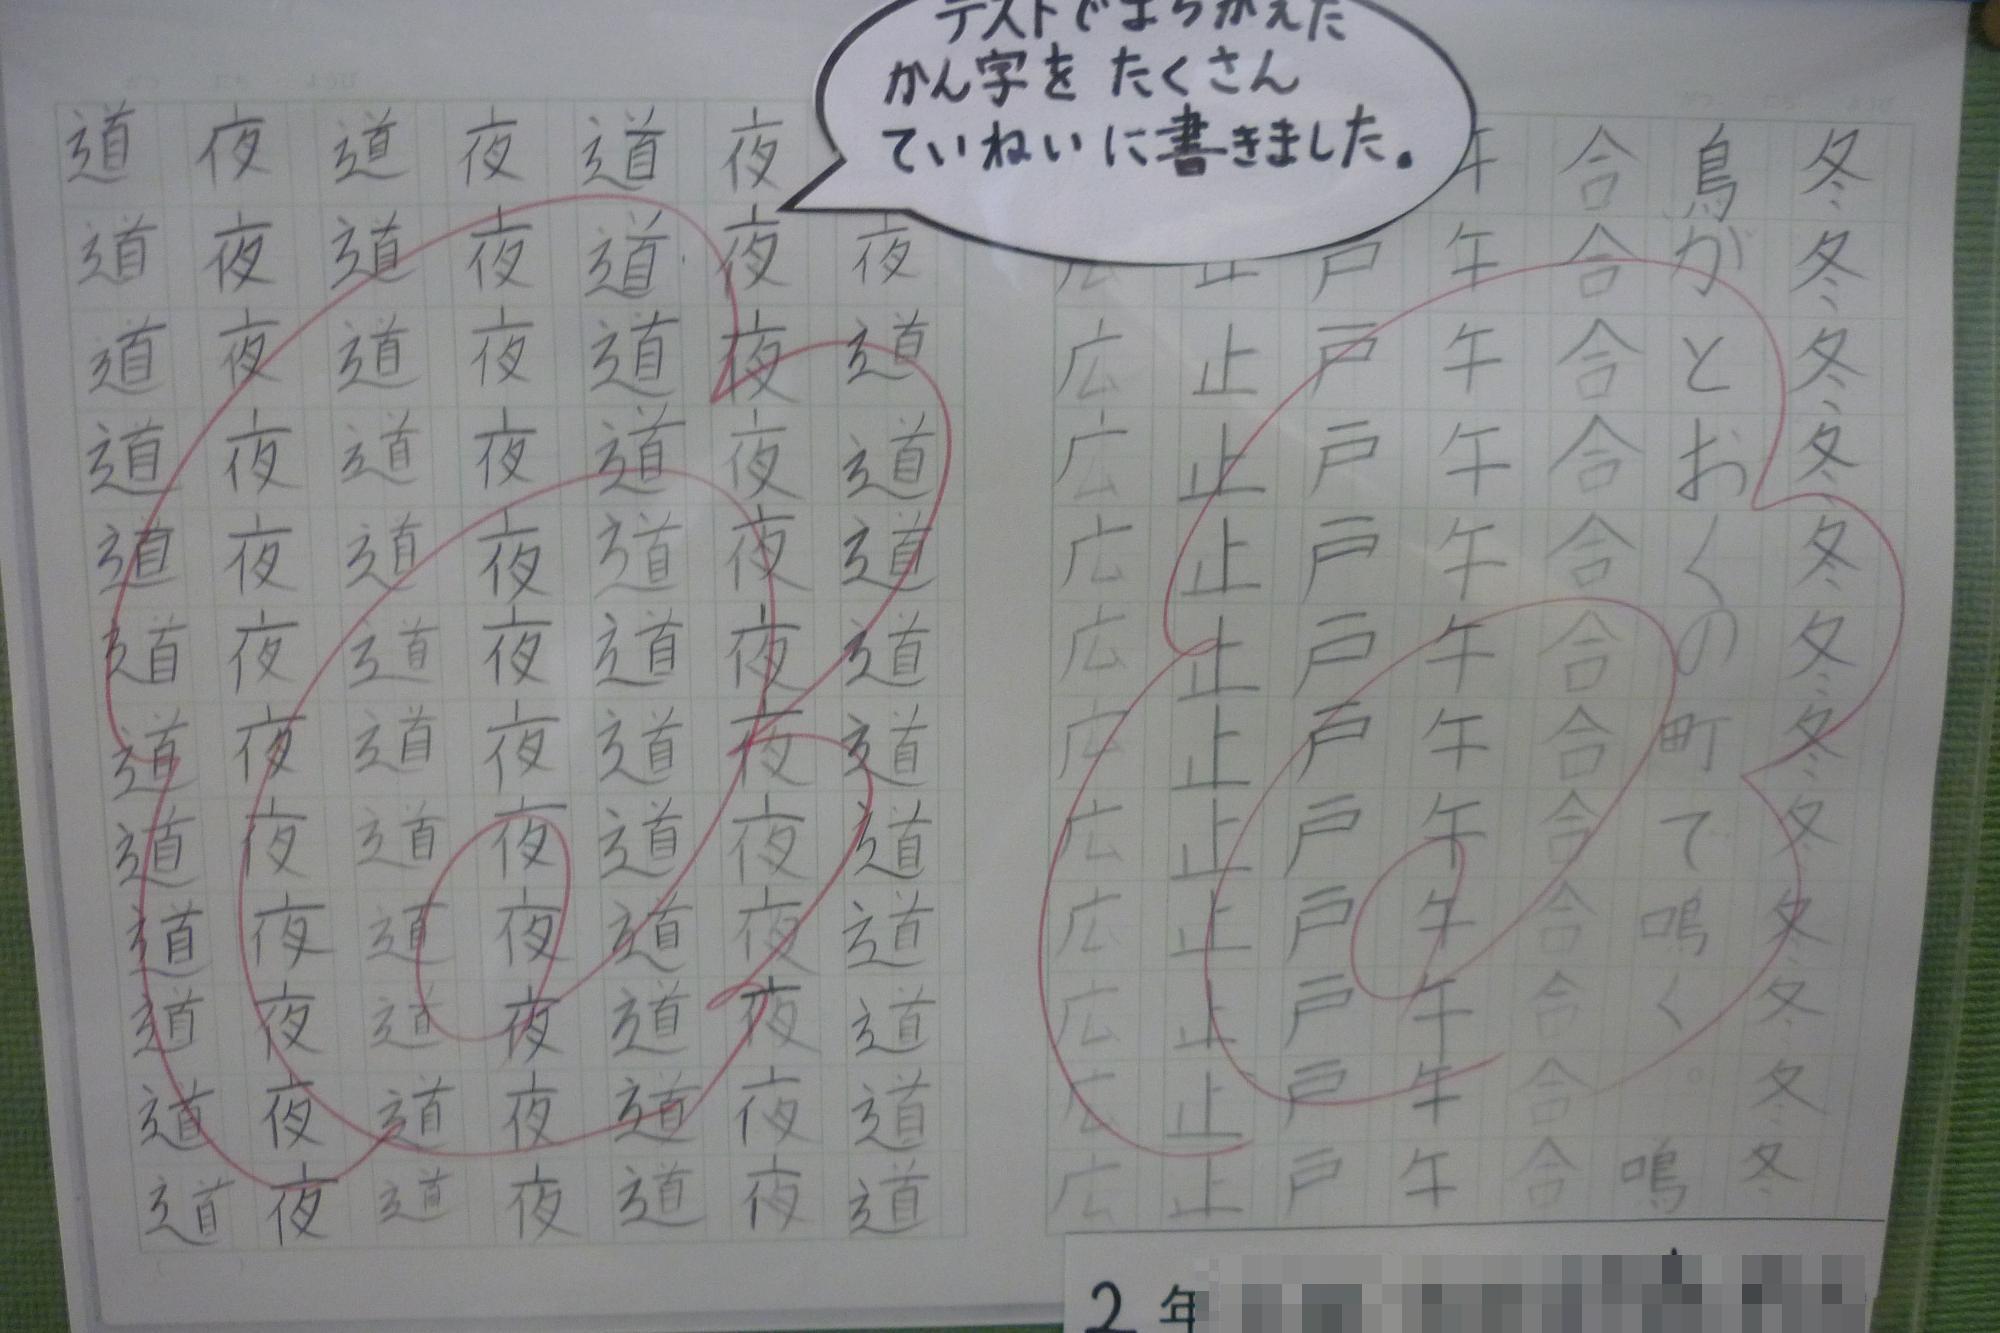 テストでまちがえた
かん字をたくさん
ていねいに書きました。
冬冬冬冬冬冬冬冬冬冬冬冬
鳥がとおくの町で鳴く。鳴
合合合合合合合合合合合合
午午午午午午午午午午午午
戸戸戸戸戸戸戸戸戸戸戸
止止止止止止止止止止止
広広広広広広広広広広広
夜道道道道道道道道道道
夜夜夜夜夜夜夜夜夜夜夜夜
道道道道道道道道道道道道
夜夜夜夜夜夜夜夜夜夜夜夜
道道道道道道道道道道道道
夜夜夜夜夜夜夜夜夜夜夜夜
道道道道道道道道道道道道
2年